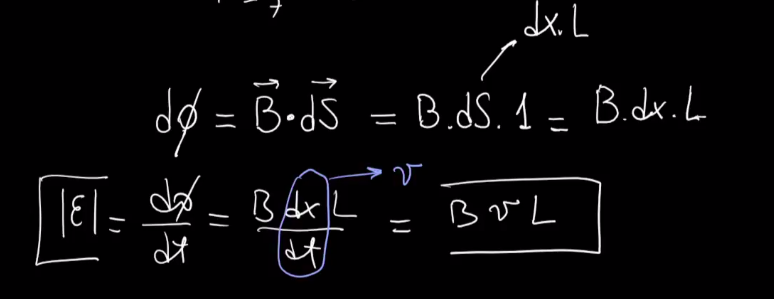 dx.L
dϕ = B⃗·dS⃗ = B.dS.1 = B.dx.L
|ε| = dϕ/dt = B dx L/dt = B v L
v